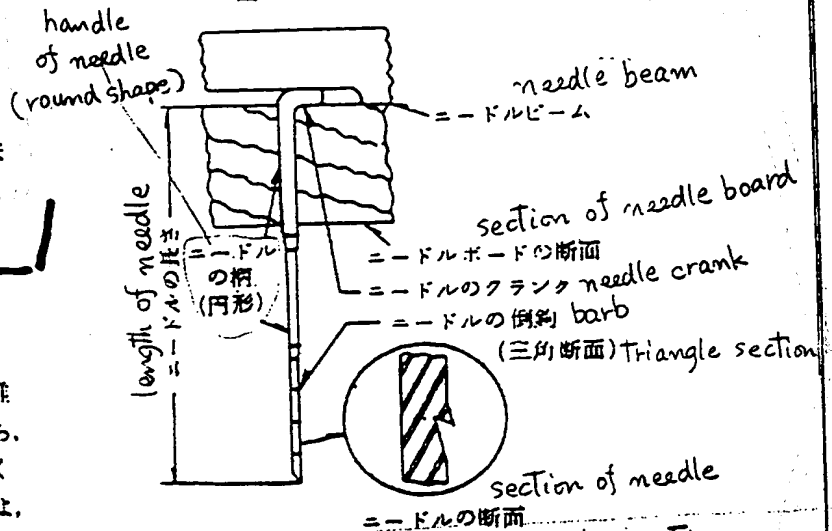 handle
of needle
(round shape)
needle beam
ニードルビーム
section of needle board
ニードルボードの断面
ニードルのクランク needle crank
ニードルの倒鈎 barb
(三角断面) Triangle section
length of needle
ニードルの長さ
ニードル
の柄
(円形)
section of needle
ニードルの断面